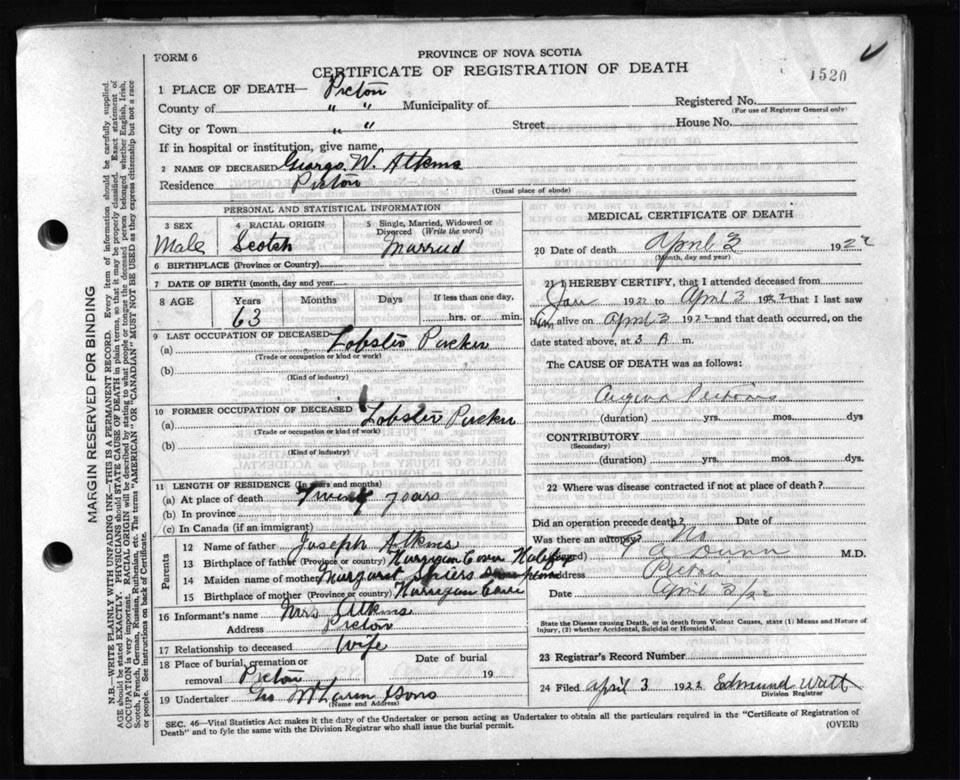 PROVINCE OF NOVA SCOTIA
FORM 6
CERTIFICATE OF REGISTRATION OF DEATH
1520
1 PLACE OF DEATH— Pictou
County of " " Municipality of Registered No.
(For use of Registrar General only)
City or Town " " Street House No.
If in hospital or institution, give name
2 NAME OF DECEASED George W. Atkins
Residence Pictou
(Usual place of abode)
PERSONAL AND STATISTICAL INFORMATION
3 SEX 4 RACIAL ORIGIN 5 Single, Married, Widowed or Divorced (Write the word)
Male Scotch Married
6 BIRTHPLACE (Province or Country)
7 DATE OF BIRTH (month, day and year)
8 AGE Years Months Days If less than one day,
63 hrs. or min.
9 LAST OCCUPATION OF DECEASED
(a) Lobster Packer
(Trade or occupation or kind or work)
(b)
(Kind of industry)
10 FORMER OCCUPATION OF DECEASED
(a) Lobster Packer
(Trade or occupation or kind or work)
(b)
(Kind of industry)
11 LENGTH OF RESIDENCE (In years and months)
(a) At place of death Twenty years
(b) In province
(c) In Canada (if an immigrant)
Parents
12 Name of father Joseph Atkins
13 Birthplace of father (Province or country) Cove Halifax
14 Maiden name of mother Margaret
15 Birthplace of mother (Province or country) Cove
16 Informant's name Mrs Atkins
Address Pictou
17 Relationship to deceased Wife
18 Place of burial, cremation or removal Pictou Date of burial 19
19 Undertaker Geo & Sons
(Name and Address)
MEDICAL CERTIFICATE OF DEATH
20 Date of death April 3 1922
(Month, day and year)
21 I HEREBY CERTIFY, that I attended deceased from
Jan 1922 to April 3 1922 that I last saw
him alive on April 3 1922 and that death occurred, on
date stated above, at 3 A m.
The CAUSE OF DEATH was as follows:
Angina Pectoris
(duration) yrs. mos. dys
CONTRIBUTORY
(Secondary)
(duration) yrs. mos. dys.
22 Where was disease contracted if not at place of death?
Did an operation precede death? Date of
Was there an autopsy? No
(Signed) Dunn M.D.
Address Pictou
Date April 3/22
State the Disease causing Death, or in death from Violent Causes, state (1) Means and Nature of
Injury, (2) whether Accidental, Suicidal or Homicidal.
23 Registrar's Record Number
24 Filed April 3 1922 Edmund Watt
Division Registrar
SEC. 46—Vital Statistics Act makes it the duty of the Undertaker or person acting as Undertaker to obtain all the particulars required in the "Certificate of Registration of
Death" and to fyle the same with the Division Registrar who shall issue the burial permit.
(OVER)
MARGIN RESERVED FOR BINDING
N.B.—WRITE PLAINLY WITH UNFADING INK—THIS IS A PERMANENT RECORD. Every item of information should be carefully supplied.
AGE should be stated EXACTLY. PHYSICIANS should STATE CAUSE OF DEATH in plain terms, so that it may be properly classified. Exact statement of
OCCUPATION is very important. RACIAL ORIGIN will be described by stating to what people or tongue the deceased person belonged whether English, Irish,
Scotch, French, German, Russian, Ruthenian, etc. The terms "AMERICAN" OR "CANADIAN" MUST NOT BE USED as they express citizenship but not a race
of people. See instructions on back of Certificate.